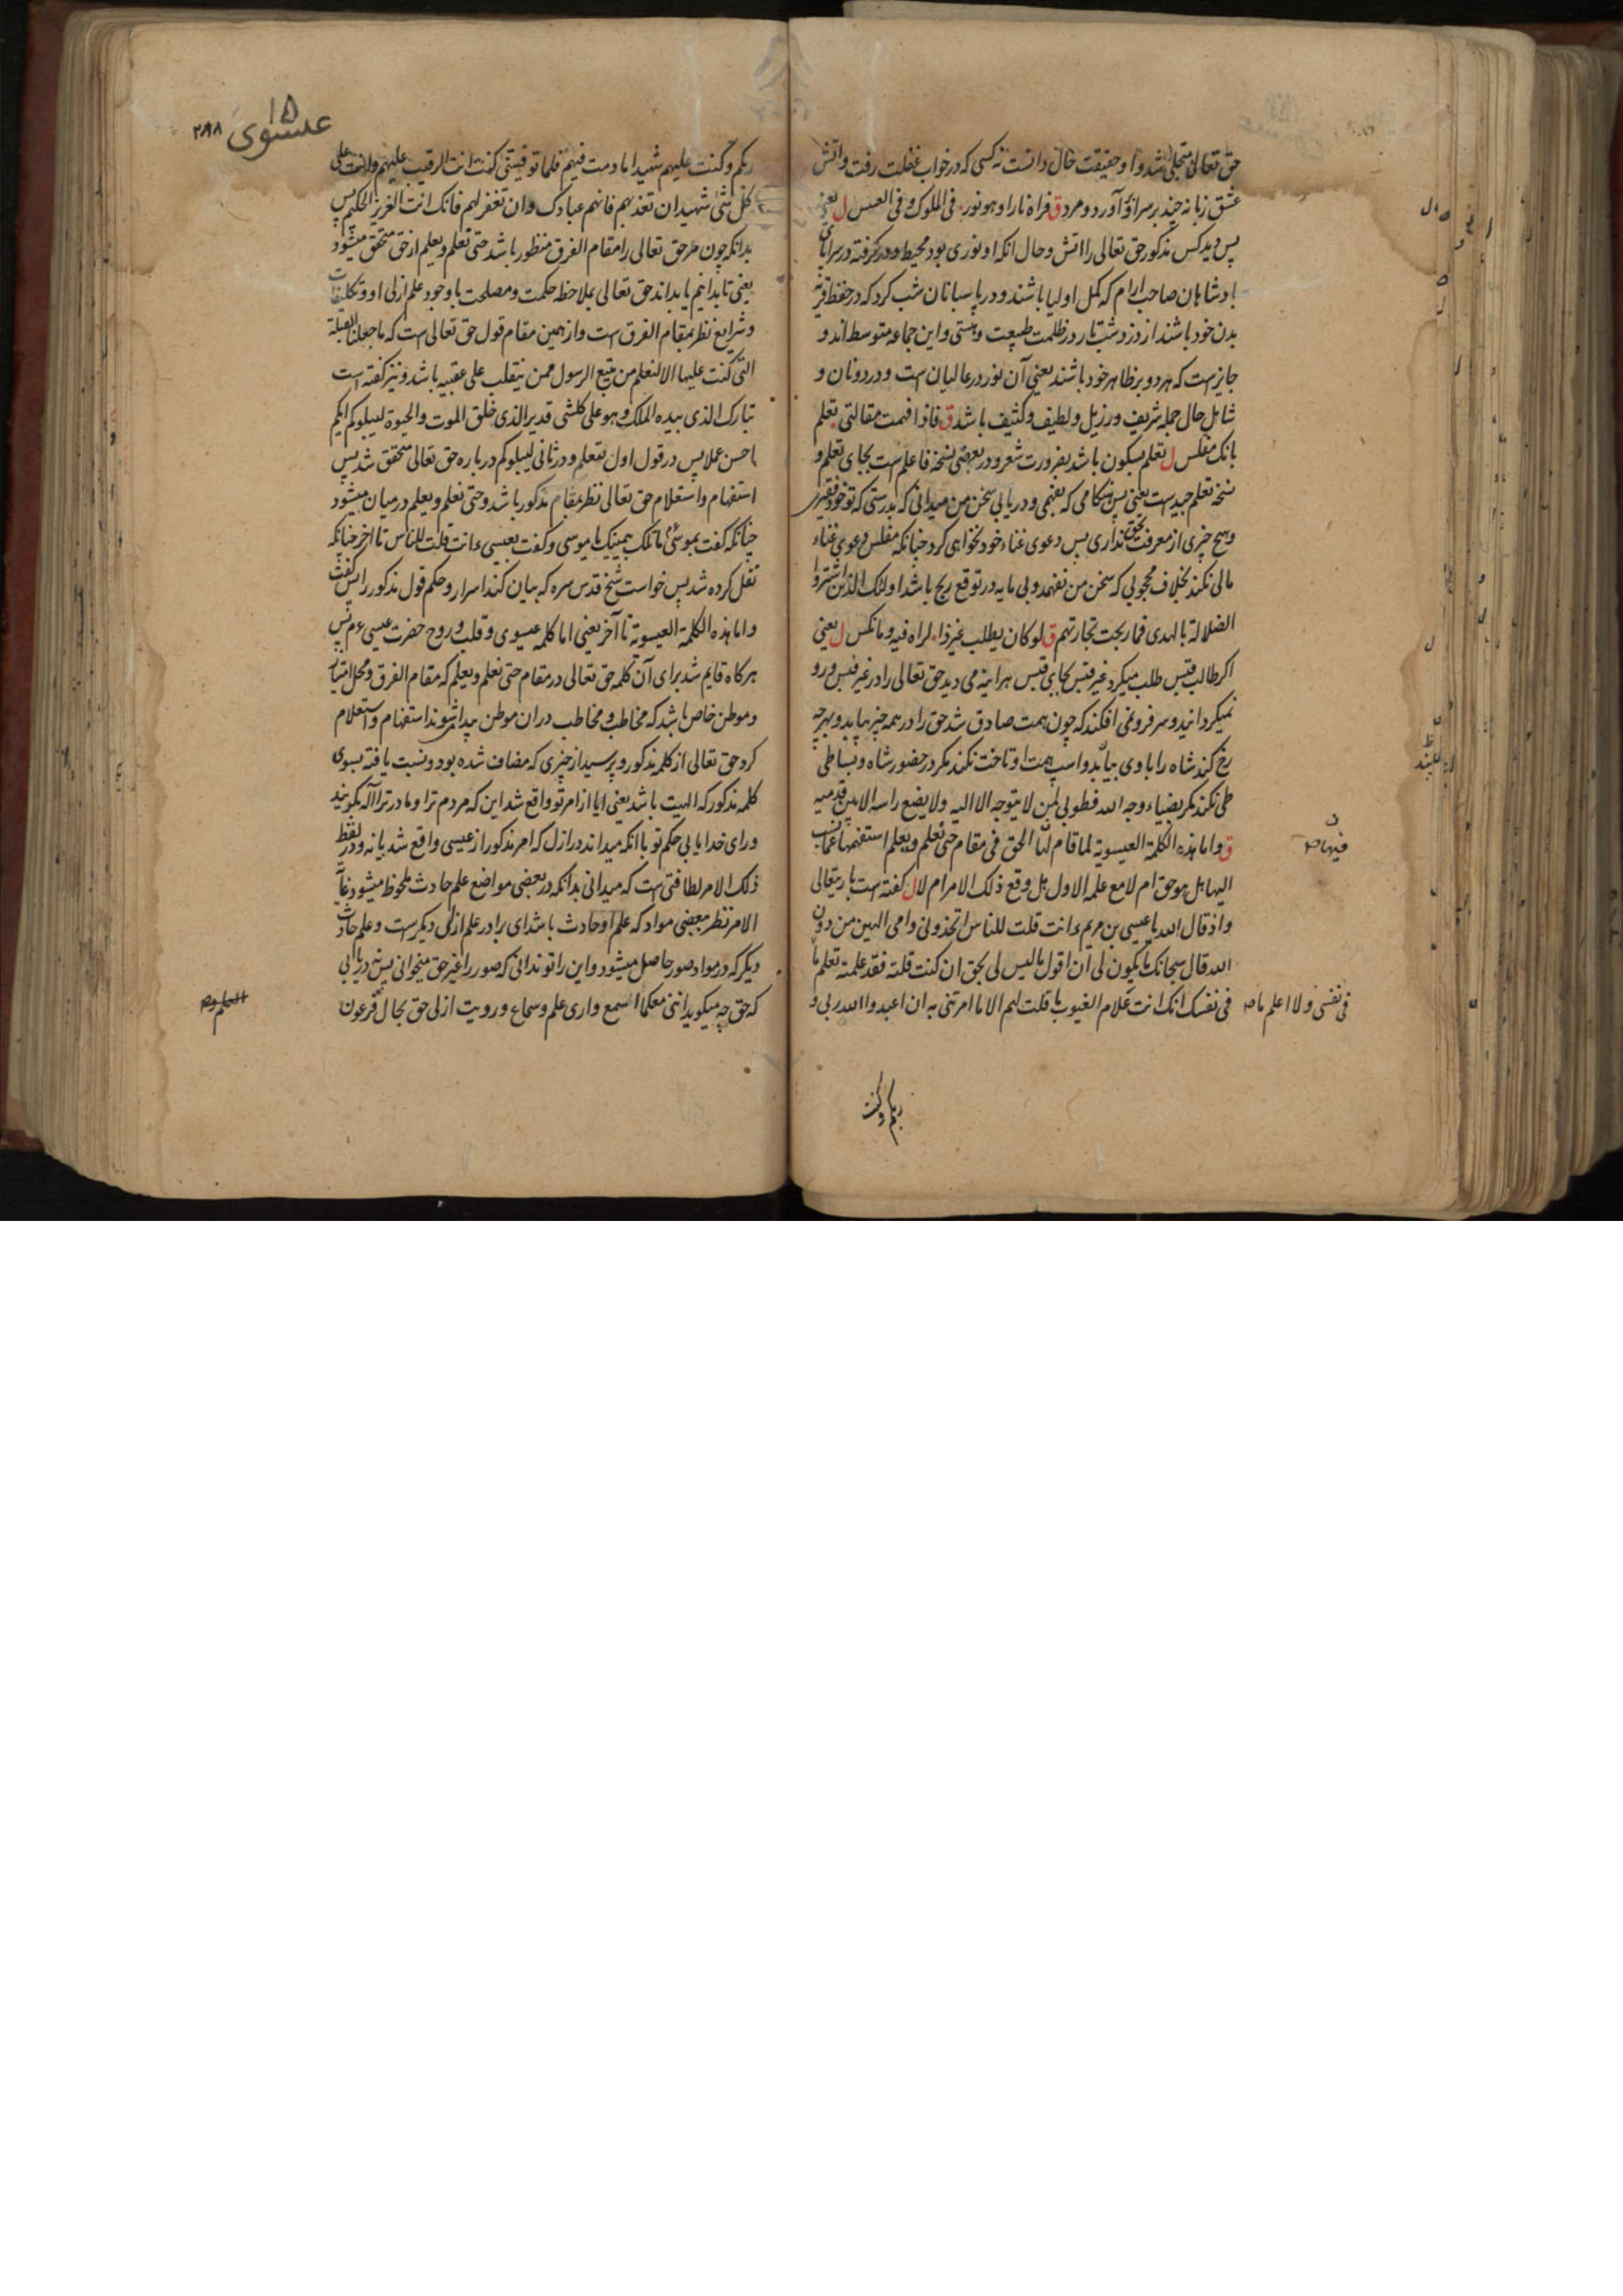 حق تعالی متجلی شد و او حقیقت حال دانست نه کسی که در خواب غفلت رفت و آتش
عشق زبانه چند بر سر او آورد و مرد ق فراه نارا و هو نور فی الملوک و فی العسس ل یعنی
پس دید کس مذکور حق تعالی را آتش و حال انکه او نوری بود محیط و در گرفته در سراپای
پادشاهان صاحب ارام که کمل اولیا باشند و در پاسبانان شب کرد که در حفظ قریهٔ
بدن خود باشند از دزد شب تار در ظلمت طبیعت و هستی و این جماعه متوسط اند و
جایز است که هر دو بر ظاهر خود باشند یعنی آن نور در عالیان است و در دونان و
شامل حال جمله شریف و رزیل و لطیف و کثیف باشد ق فاذا فهمت مقالتی تعلم
بانک مفلس ل تعلم بسکون باشد بضرورت شعر و در بعضی نسخه فاعلم است بجای تعلم و
نسخه تعلم جید است یعنی پس هنکامی که بفهمی و دریابی سخن من میدانی که بدرستی که تو خود فقیری
و هیچ چیزی از معرفت حق نداری پس دعوی غناء خود نخواهی کرد چنانکه مفلس دعوی غناء
مالی نکند بخلاف محجوبی که سخن من نفهمد و بی مایه در توقع ربح باشد اولئک الذین اشتروا
الضلالة بالهدی فما ربحت تجارتهم ق لو کان یطلب غیر ذا لراه فیه و ما نکس ل یعنی
اکر طالب قبس طلب میکرد غیر قبس بجای قبس هراینه می دید حق تعالی را در غیر قبس و رو
نمیکردانید و سر فرو نمی افکند که چون همت صادق شد حق را در همه چیز بیابد و بهر چه
رخ کند شاه را با وی بیابد و اسپ همت او تاخت نکند مکر در حضور شاه و بساطی
طی نکند مکر بضیاء وجه الله فطوبی لمن لا یتوجه الا الیه و لا یضع راسه الا بین قدمیه
ق و اما هذه الکلمة العیسویة لما قام لها الحق فی مقام حتی نعلم و یعلم استفهمها عما نسب
الیها هل هو حق ام لا مع علمه الاول هل وقع ذلک الامر ام لا ل کفته است باریتعالی
و اذ قال الله یا عیسی بن مریم ءانت قلت للناس اتخذونی و امی الهین من دون
الله قال سبحانک ما یکون لی ان اقول ما لیس لی بحق ان کنت قلته فقد علمته تعلم ما
فی نفسی و لا اعلم ما صه فی نفسک انک انت علام الغیوب ما قلت لهم الا ما امرتنی به ان اعبدوا الله ربی و
فیها صه
ربکم و کنت
عیسوی ۱۵
۲۹۸
ربکم و کنت علیهم شهیدا ما دمت فیهم فلما توفیتنی کنت انت الرقیب علیهم و انت علی
کل شی شهید ان تعذبهم فانهم عبادک و ان تغفر لهم فانک انت العزیز الحکیم پس
بدانکه چون مر حق تعالی را مقام الفرق منظور باشد حتی نعلم و یعلم از حق متحقق میشود
یعنی تا بدانیم یا بداند حق تعالی بملاحظه حکمت و مصلحت با وجود علم ازلی او و تکلیفات
و شرایع نظر بمقام الفرق است و از همین مقام قول حق تعالی است که ما جعلنا القبلة
التی کنت علیها الا لنعلم من یتبع الرسول ممن ینقلب علی عقبیه باشد و نیز کفته است
تبارک الذی بیده الملک و هو علی کلشی قدیر الذی خلق الموت و الحیوة لیبلوکم ایکم
احسن عملا پس در قول اول لنعلم و در ثانی لیبلوکم در باره حق تعالی متحقق شد پس
استفهام و استعلام حق تعالی نظر بمقام مذکور باشد و حتی نعلم و یعلم در میان میشود
چنانکه گفت بموسی ما تلک بیمینک یا موسی و کفت بعیسی ءانت قلت للناس تا آخر چنانکه
نقل کرده شد پس خواست شیخ قدس سره که بیان کند اسرار و حکم قول مذکور را پس کفت
و اما هذه الکلمة العیسویة تا آخر یعنی اما کلمه عیسوی و قلب و روح حضرت عیسی ءم پس
هر کاه قایم شد برای آن کلمه حق تعالی در مقام حتی نعلم و یعلم که مقام الفرق و محل امتیاز
و موطن خاص باشد که مخاطب و مخاطب در ان موطن پیدا شوند استفهام و استعلام
کرد حق تعالی از کلمه مذکور و پرسید از چیزی که مضاف شده بود و نسبت یافته بسوی
کلمه مذکور که الهیت باشد یعنی ایا از امر تو واقع شد این که مردم ترا و مادر ترا اله بکویند
ورای خدا یا بی حکم تو با انکه میداند در ازل که امر مذکور از عیسی واقع شد یا نه و در لفظ
ذلک الامر لطافتی است که میدانی بدانکه در بعضی مواضع علم حادث ملحوظ میشود
الامر نظر ببعضی مواد که علم او حادث باشد ای برادر علم ازلی دیکر است و علم حادث
دیکر که در مواد صور حاصل میشود و این را تو ندانی که صور را غیر حق میخوانی پس نه دریابی
که حق چه میکوید اننی معکما اسمع و اری علم و سماع و رویت ازلی حق بحال فرعون